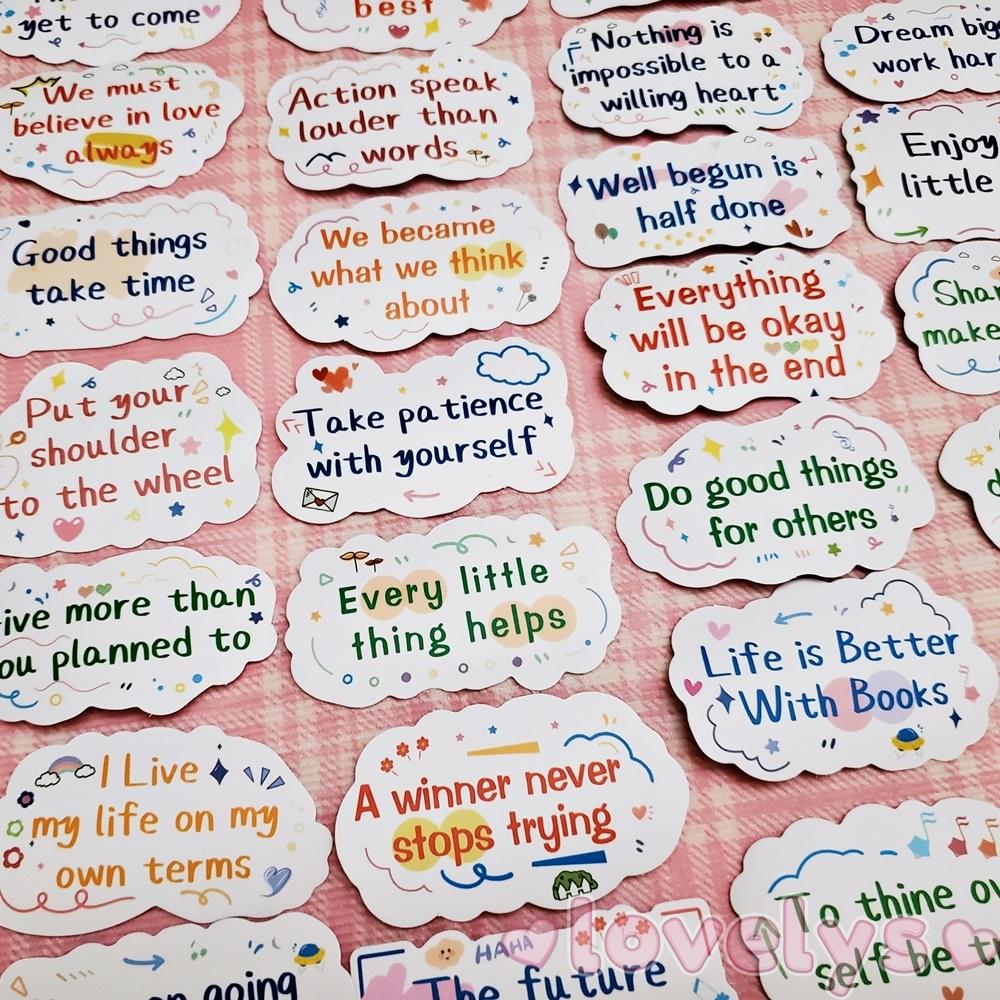 yet to come
best
Nothing is
impossible to a
willing heart
Dream big
work
We must
believe in love
always
Action speak
louder than
words
Enjoy
little
Well begun is
half done
Good things
take time
We became
what we think
about
Everything
will be okay
in the end
make
Put your
shoulder
to the wheel
Take patience
with yourself
Do good things
for others
more than
planned to
Every little
thing helps
Life is Better
With Books
I Live
my life on my
own terms
A winner never
stops trying
To thine
self be
going
HAHA
The future
lovelys